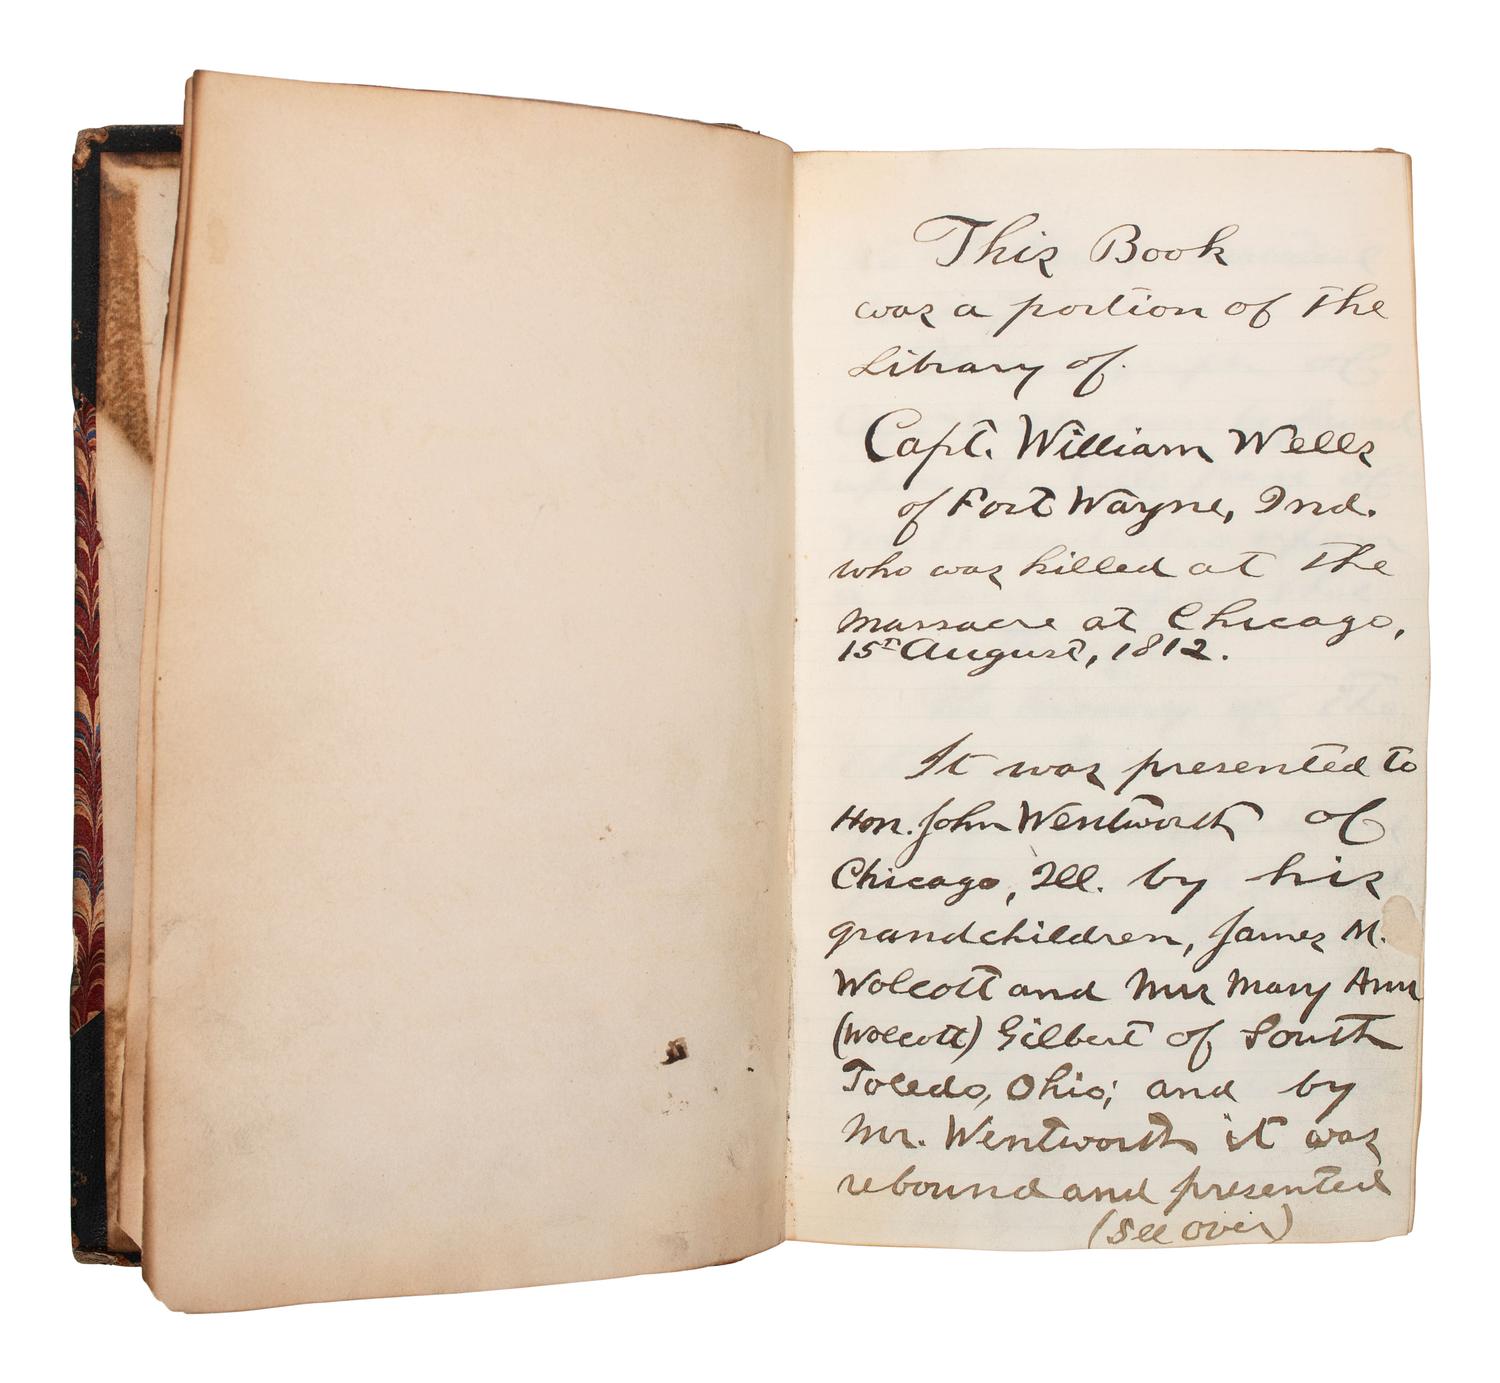 This Book
was a portion of the
Library of.
Capt. William Wells
of Fort Wayne, Ind.
who was killed at the
massacre at Chicago,
15th August, 1812.
It was presented to
Hon. John Wentworth of
Chicago, Ill. by his
grandchildren, James M.
Wolcott and Mrs Mary Ann
(Wolcott) Gilbert of South
Toledo, Ohio; and by
Mr. Wentworth it was
rebound and presented
(See over)